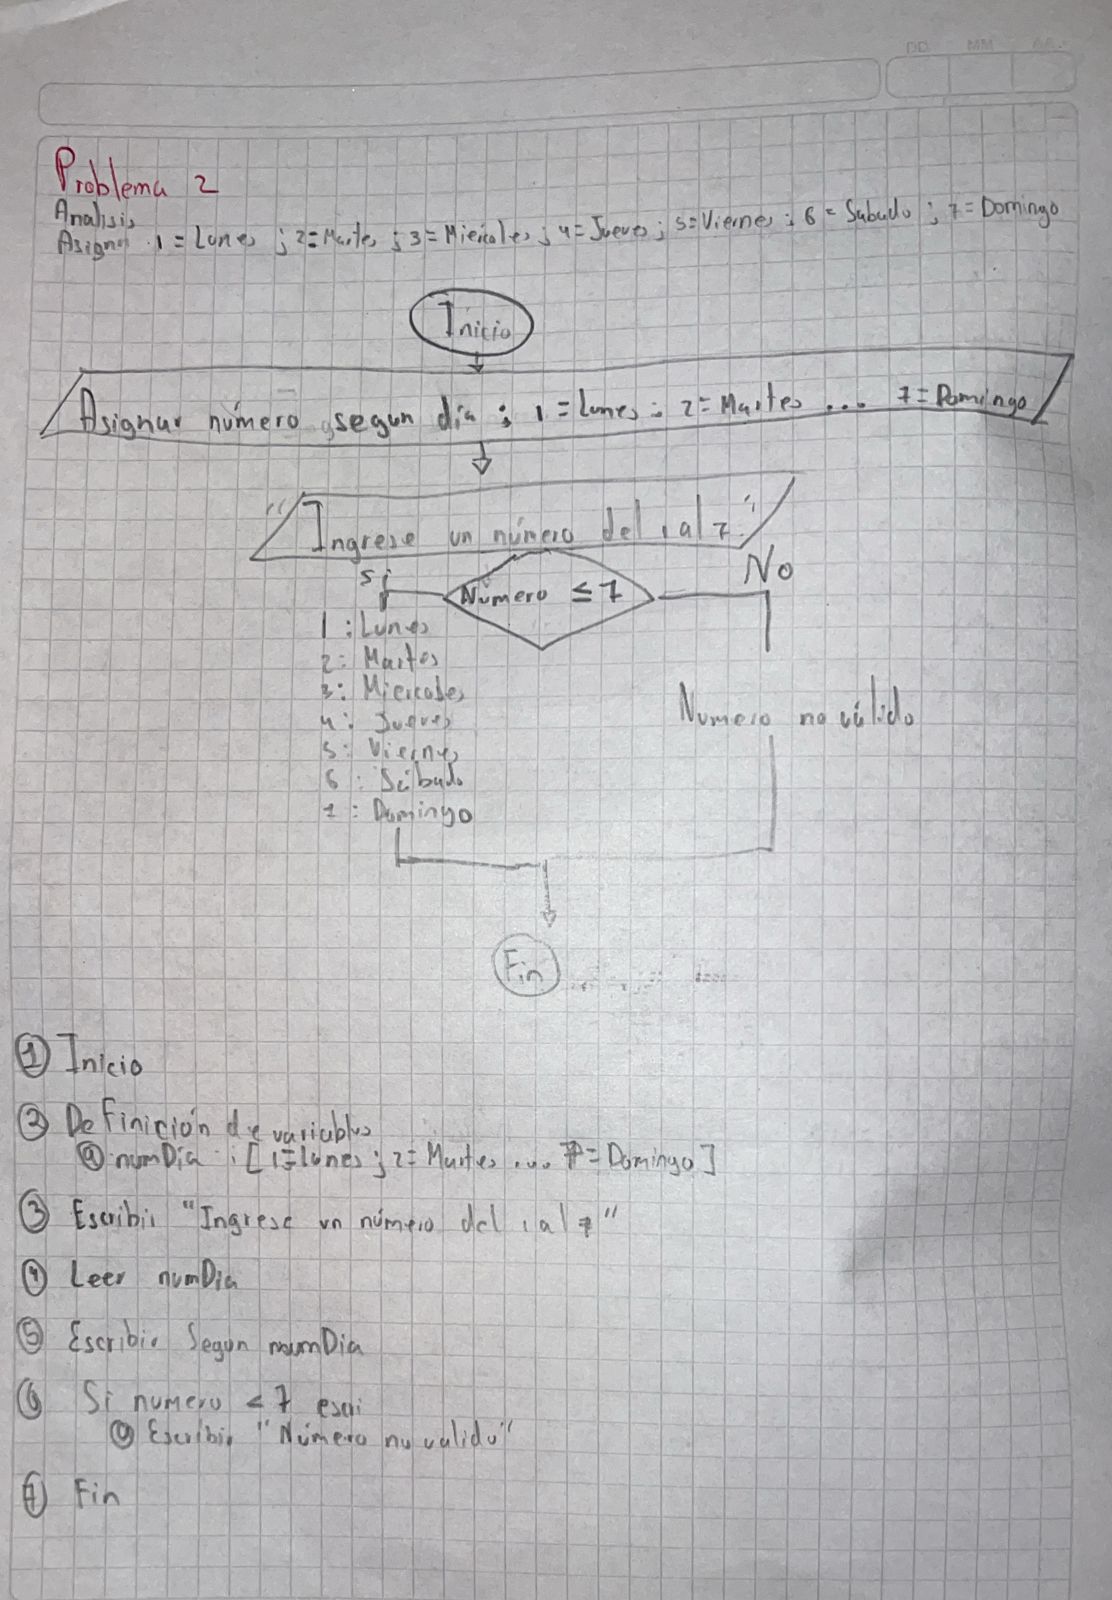 DD MM AA
Problema 2
Analisis
Asignar 1 = Lunes ; 2 = Martes ; 3 = Miercoles ; 4 = Jueves ; 5 = Viernes ; 6 = Sabado ; 7 = Domingo
Inicio
Asignar número segun día : 1 = Lunes ; 2 = Martes ... 7 = Domingo
"Ingrese un número del 1 al 7"
Si
Número ≤ 7
No
1 : Lunes
2 : Martes
3 : Miercoles
4 : Jueves
5 : Viernes
6 : Sábado
7 : Domingo
Numero no válido
Fin
① Inicio
② Definición de variables
ⓐ numDia : [ 1 = lunes ; 2 = Martes ... 7 = Domingo ]
③ Escribir "Ingrese un número del 1 al 7"
④ Leer numDia
⑤ Escribir Segun numDia
⑥ Si numero < 7 escri
ⓐ Escribir "Número no valido"
⑦ Fin